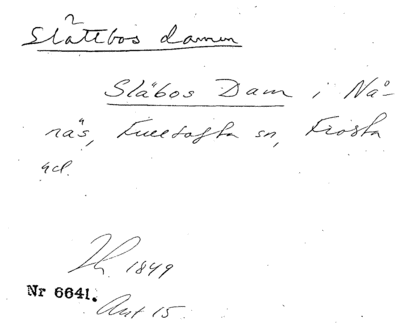 Slättbos dammen
Släbos Dam i Nå-
näs, Fulltofta sn, Frosta
hd.
1849
Nr 6641.
Ant 15